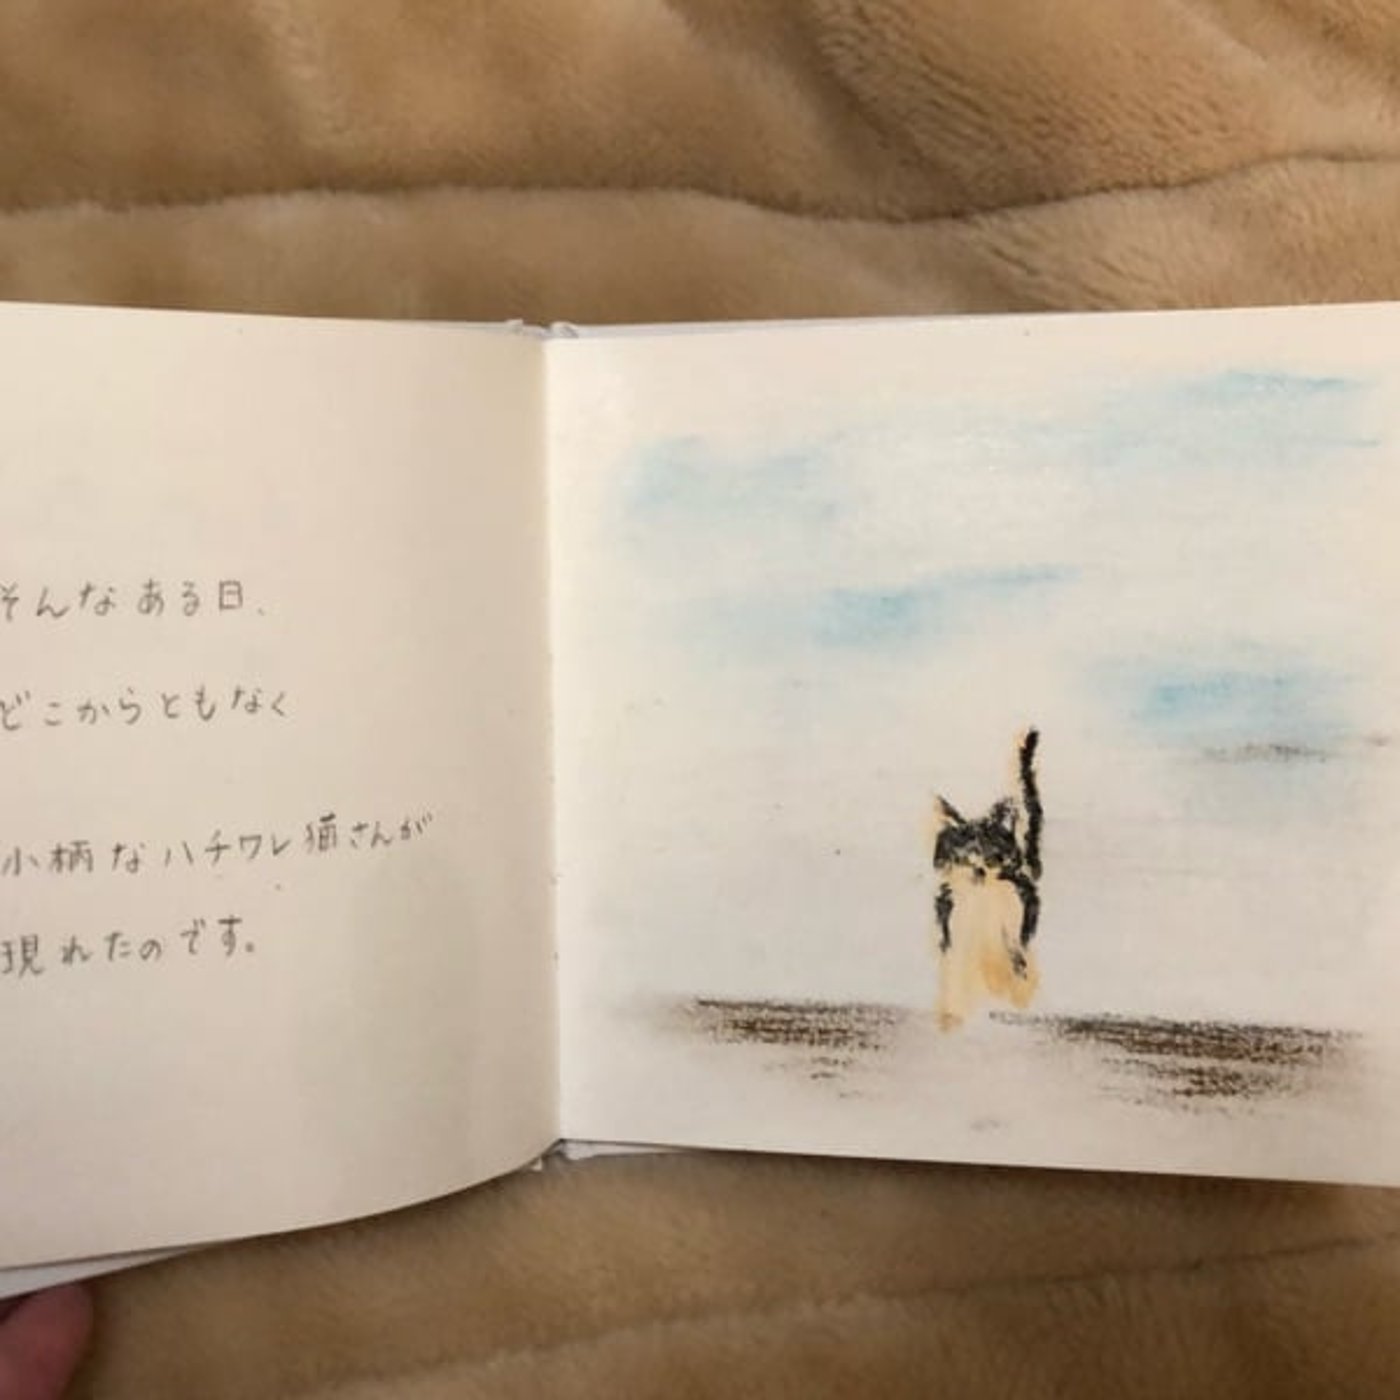 そんなある日、
どこからともなく
小柄なハチワレ猫さんが
現れたのです。